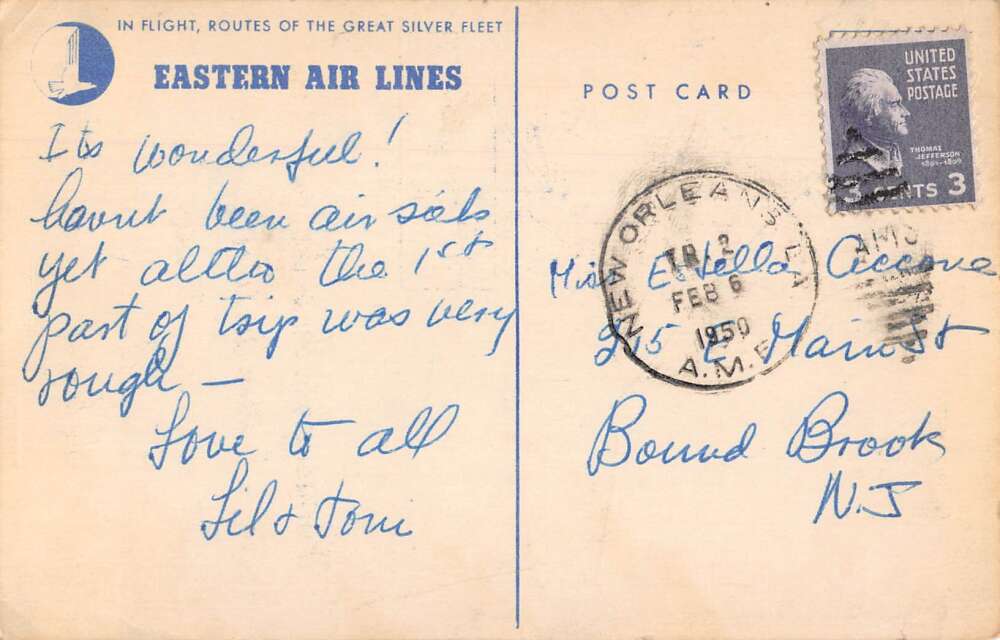 IN FLIGHT, ROUTES OF THE GREAT SILVER FLEET
EASTERN AIR LINES
Its wonderful!
havnt been air sick
yet altho the 1st
part of trip was very
rough —
Love to all
Lil & Tom
POST CARD
UNITED
STATES
POSTAGE
THOMAS
JEFFERSON
1801-1809
3 CENTS 3
NEW ORLEANS LA
TR. 2
FEB 6
1950
A.M.F
Miss Estella Ciccone
215 E Main St
Bound Brook
N.J